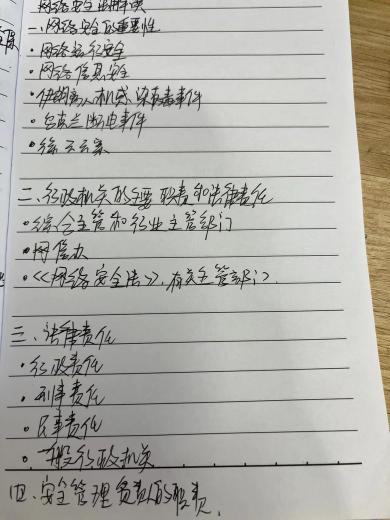 网络安全法解读
一、网络安全的重要性
·网络运行安全
·网络信息安全
·伊朗离心机感染病毒事件
·乌克兰断电事件
·徐玉玉案
二、行政机关的主要职责和法律责任
·综合主管和行业主管部门
·网信办
·《网络安全法》,有关主管部门.
三、法律责任
·行政责任
·刑事责任
·民事责任
·一般行政机关
四、安全管理负责人的职责.